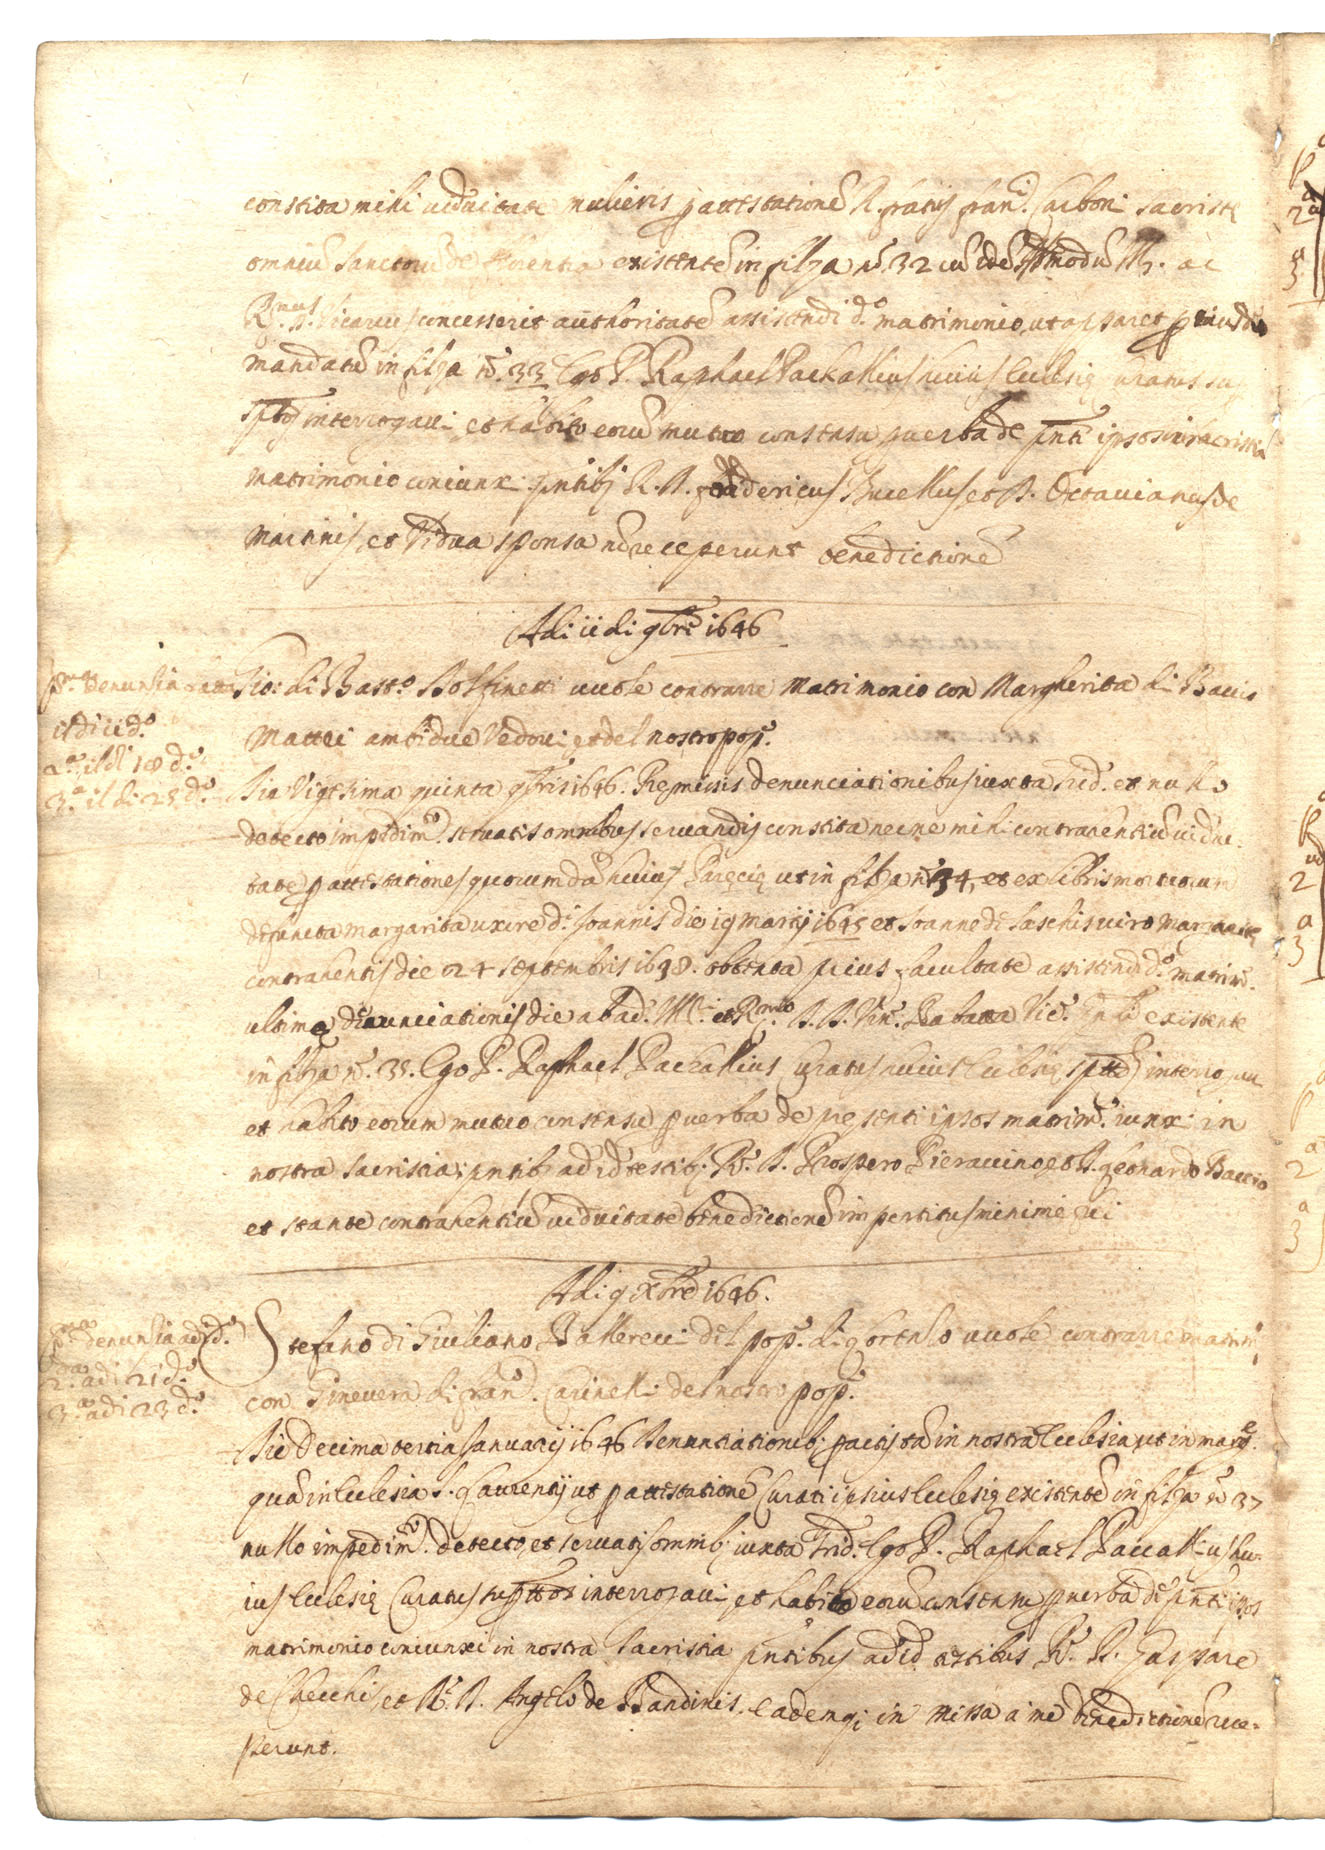 constita mihi viduitate mulieris p attestatione R. fratris Fran.i Carboni sacriste
omniũ Sanctorũ de existentẽ in filza n.o 32 cũ Ill. ac
R.mus D. Vicarius concesserit authoritatẽ assistendi d.o matrimonio, ut apparet p eiusdẽ
mandatũ in filza n.o 33 Ego P. Raphael Packallius huius Eclesię curatus
interrogavi et habito eorũ mutuo consensu p verba de pñti ipsos in sacristia
matrimonio coniunxi pñtibj R. D. Fredericus Bucellus et D. Octavianus de
Martinis, et Vidua sponsa nõ receperunt benedictionẽ
Adi ii di 9bre 1646
p.ma denunsia fatta
il di ii d.o
2.a il di 18 d.o
3.a il di 25 d.o
Gio: di Bast.o Dolfinetti vuole contrarre Matrimonio con Margherita di Baccio
Mattei ambidue Vedovi et del nostro pop.o
Die Vigesima quinta 9bris 1646. Premissis denunciationibus iuxta Trid. et nullo
detecto impedim.o servatis omnibus servandis constita necne mihi contrahentiũ vidui-
tate p attestationes quorumdã huius ut in filza n.o 34, et ex libris mortuorum
defuncta Margarita uxore d.i Joannis die 19 Martij 1645 et Joanne de Saschis viro Margarite
contrahentis die 24 septembris 1638. obtenta prius facultate assistendi d.o matrim.o
ultima denunciationis die ab ad. Ill. et R.mo D. D. Vin.o Rabatta Vic.o existente
in filza n.o 35. Ego P. Raphael Packallius Curatus huius Eclesię interrogavi
et habito eorum mutuo consensu p verba de presenti ipsos matrim.o iunxi in
nostra sacristia; pñtibj ad id testibj R. D. Prospero Pieraccino et D. Leonardo Baccio
et stante contrahentiũ viduitate benedictionẽ impertitus minime fui
Adi 9 Xbre 1646.
p.ma denunsia adi 9 d.o
2.da adi 21 d.o
3.a adi 23 d.o
Stefano di Giuliano Ballerecci del pop.o di S. Lorenso vuole contrarre matrim.o
con Ginevera di Fran.o Carinelli del nostro pop.o
Die Decima tertia Januarij 1646 Denuntiationibj pactis tã in nostra Eclesia ut in marg.e
quã in Eclesia S. Laurentij ut p attestationẽ Curati ipsius Eclesię existentẽ in filza n.o 37
nullo impedim.o detecto, et servatis omnibj iuxta Trid. Ego P. Raphael Paccallius hu-
ius Eclesię Curatus supttos interrogavi, et habito eorũ consensu p verba de pñti ipsos
matrimonio coniunxi in nostra sacristia pñtibus ad id testibus R. D. Gaspare
de Checchis et R. D. Angelo de Bandinis, eademqj in missa a me benedictionẽ rece-
perunt.